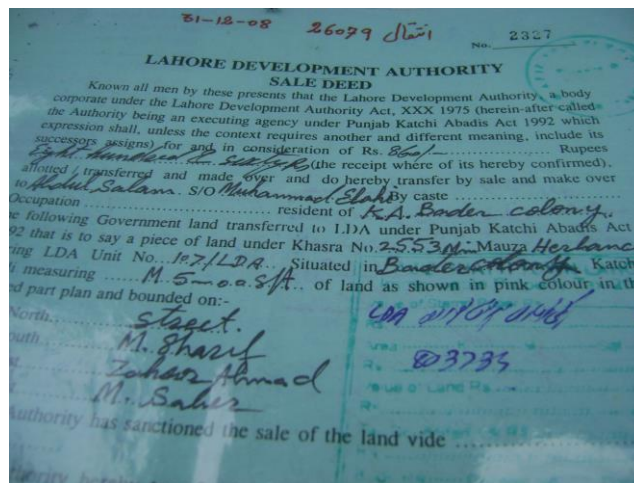 31-12-08 26079 انتقال
No. 2327
LAHORE DEVELOPMENT AUTHORITY
SALE DEED
Known all men by these presents that the Lahore Development Authority, a body
corporate under the Lahore Development Authority Act, XXX 1975 (herein-after called
the Authority being an executing agency under Punjab Katchi Abadis Act 1992 which
expression shall, unless the context requires another and different meaning, include its
successors assigns) for and in consideration of Rs. 860/- Rupees
Eight hundred & sixty Rs (the receipt where of its hereby confirmed),
allotted / transferred and made over and do hereby transfer by sale and make over
to Abdul Salam S/O Muhammad Elahi By caste
Occupation resident of K.A. Bader colony.
e following Government land transferred to LDA under Punjab Katchi Abadis Act
92 that is to say a piece of land under Khasra No. 2553 Min Mauza
ring LDA Unit No. 107/LDA. Situated in Bader colony Katch
i measuring M.5-00.Sft. of land as shown in pink colour in th
ed part plan and bounded on:-
North street.
outh M. Sharif
st Zahoor Ahmad
M. Saber
LDA
803735
ue of Land Rs
Authority has sanctioned the sale of the land vide